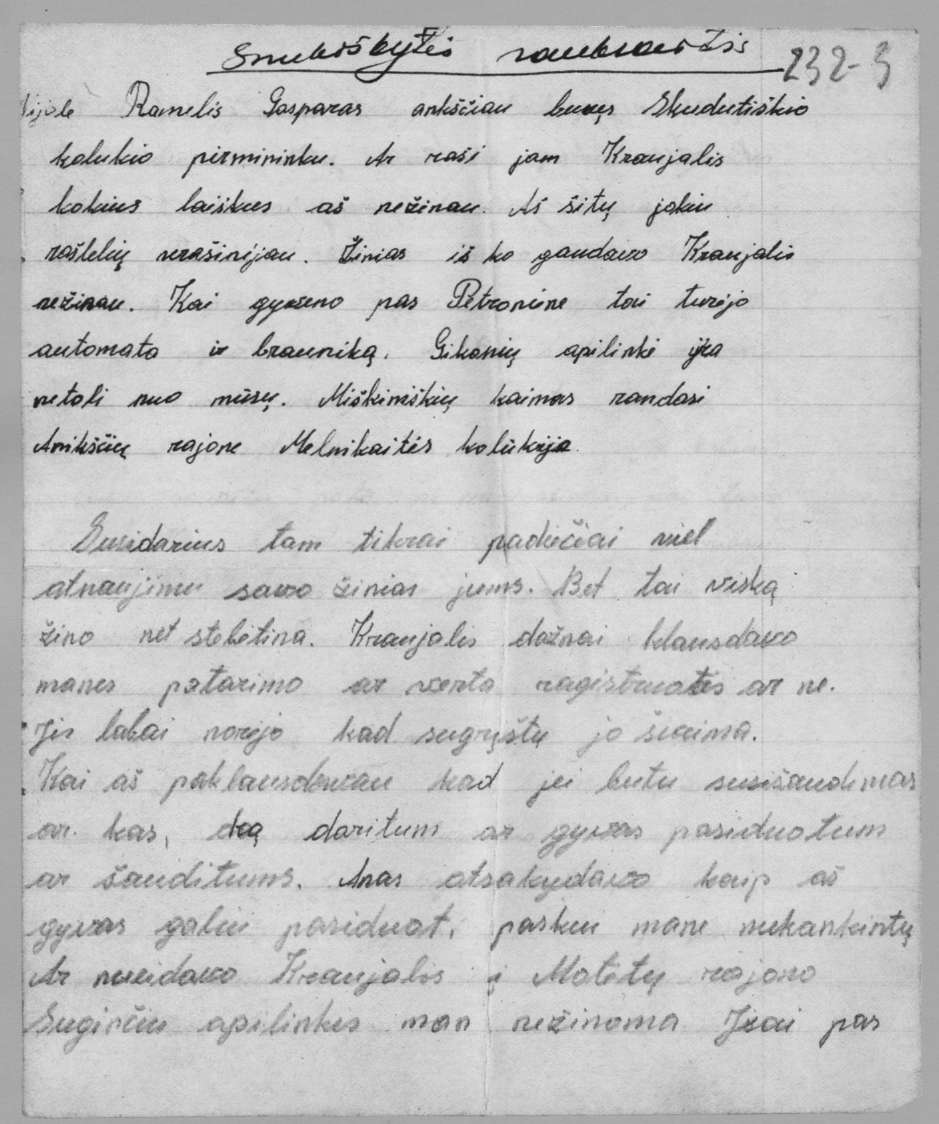 Smukiškytės rankraštis 232-3
Ramelis Gasparas ankščiau buvęs Skudutiškio
kolukio pirmininku. Ar raši jam Kraujalis
kokius laiškus aš nežinau. Aš šitų jokiu
raštelių nerašinijau. Žinias iš ko gaudavo Kraujalis
nežinau. Kai gyveno pas Petronine tai turėjo
automata ir brauniką. Gikonių apilinkė yra
netoli nuo mūsų. Miškiniškių kaimas randasi
Anikščių rajone Melnikaitės kolūkyje.
Susidarius tam tikrai padiečiai viel
atnaujinu savo žinias jums. Bet tai viską
žino net stebėtina. Kraujalis dažnai klausdavo
manęs patarimo ar verta ragistruotis ar ne.
Jis labai norėjo kad sugrįštų jo šeima.
Kai aš paklausdavau kad jei butu susišaudimas
ar kas, ką daritum ar gyvas pasiduotum
ar šauditums. Anas atsakydavo kaip aš
gyvas galiu pasiduot, paskui mane nukankintų
Ar nueidavo Kraujalis į Molėtų rajono
Suginčiu apilinkes man nežinoma Jisai pas